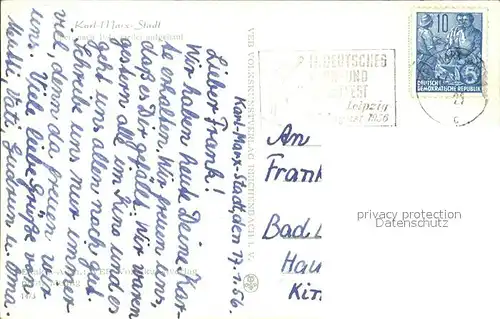 Karl-Marx-Stadt
Karl-Marx-Stadt, den 17.7.56.
Lieber Frank!
Wir haben heute Deine Kar-
te erhalten. Wir freuen uns,
daß es Dir gefällt. Wir waren
gestern alle im Kino und es
geht uns allen noch gut.
Schreibe uns nur immer
viel, denn da freuen wir
uns. Viele liebe Grüße von
Mutti, Vati, Gudrun u. Oma.
VEB VOLKSKUNSTVERLAG REICHENBACH I. V.
DEUTSCHES
UND
FEST
Leipzig
August 1956
10
DEUTSCHE
DEMOKRATISCHE REPUBLIK
An
Frank
Bad
Hau
Kin
privacy protection